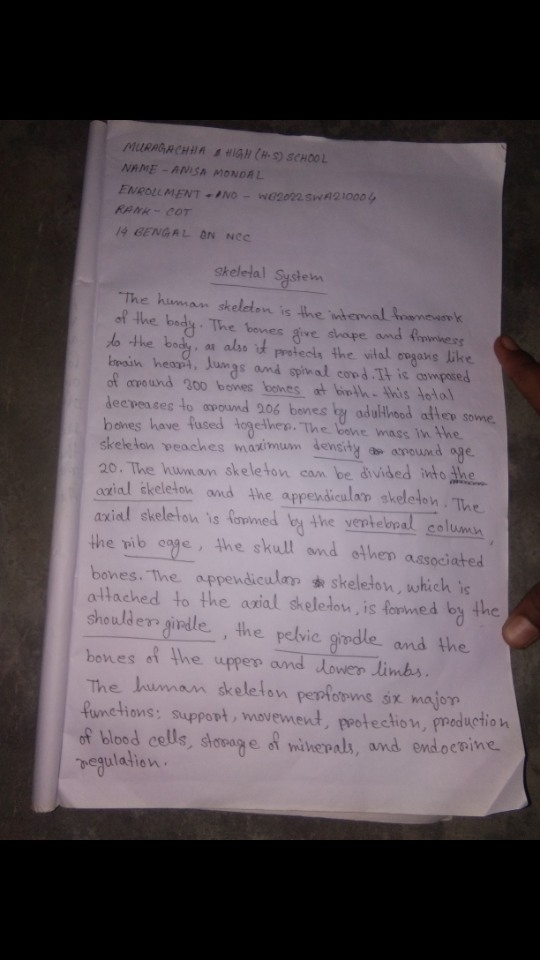 MURAGACHHA HIGH (H.S) SCHOOL
NAME - ANISA MONDAL
ENROLLMENT NO - WB2022SWA210004
RANK - CDT
14 BENGAL BN NCC
Skeletal System
The human skeleton is the internal framework
of the body. The bones give shape and firmness
to the body. as also it protects the vital organs like
brain heart, lungs and spinal cord. It is composed
of around 300 bones bones at birth - this total
decreases to around 206 bones by adulthood after some
bones have fused together. The bone mass in the
skeleton reaches maximum density around age
20. The human skeleton can be divided into the
axial skeleton and the appendicular skeleton. The
axial skeleton is formed by the vertebral column,
the rib cage, the skull and other associated
bones. The appendicular skeleton, which is
attached to the axial skeleton, is formed by the
shoulder girdle, the pelvic girdle and the
bones of the upper and lower limbs.
The human skeleton performs six major
functions: support, movement, protection, production
of blood cells, storage of minerals, and endocrine
regulation.